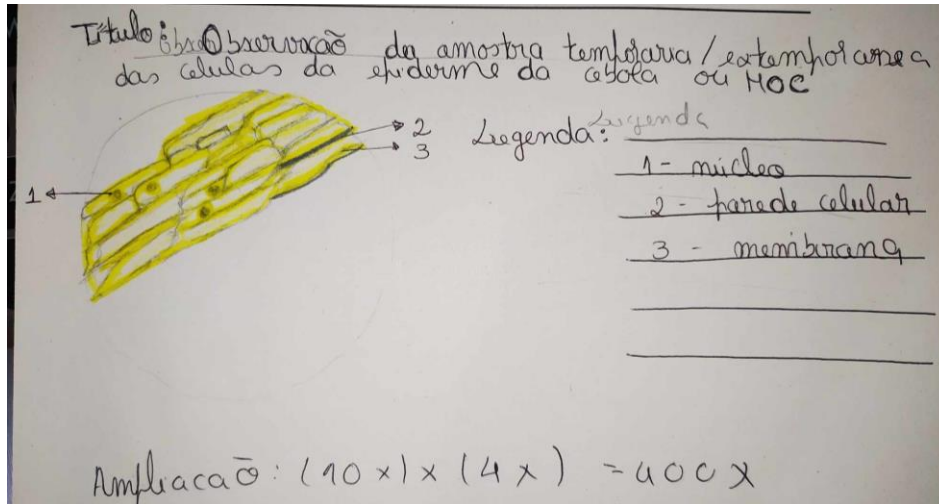 Título: Observação da amostra temporaria / extemporanea
das celulas da epiderme da cebola ou MOC
2
3
1
Legenda: Legenda
1 - núcleo
2 - parede celular
3 - membrana
Ampliacaõ: (10x) x (4x) = 400x